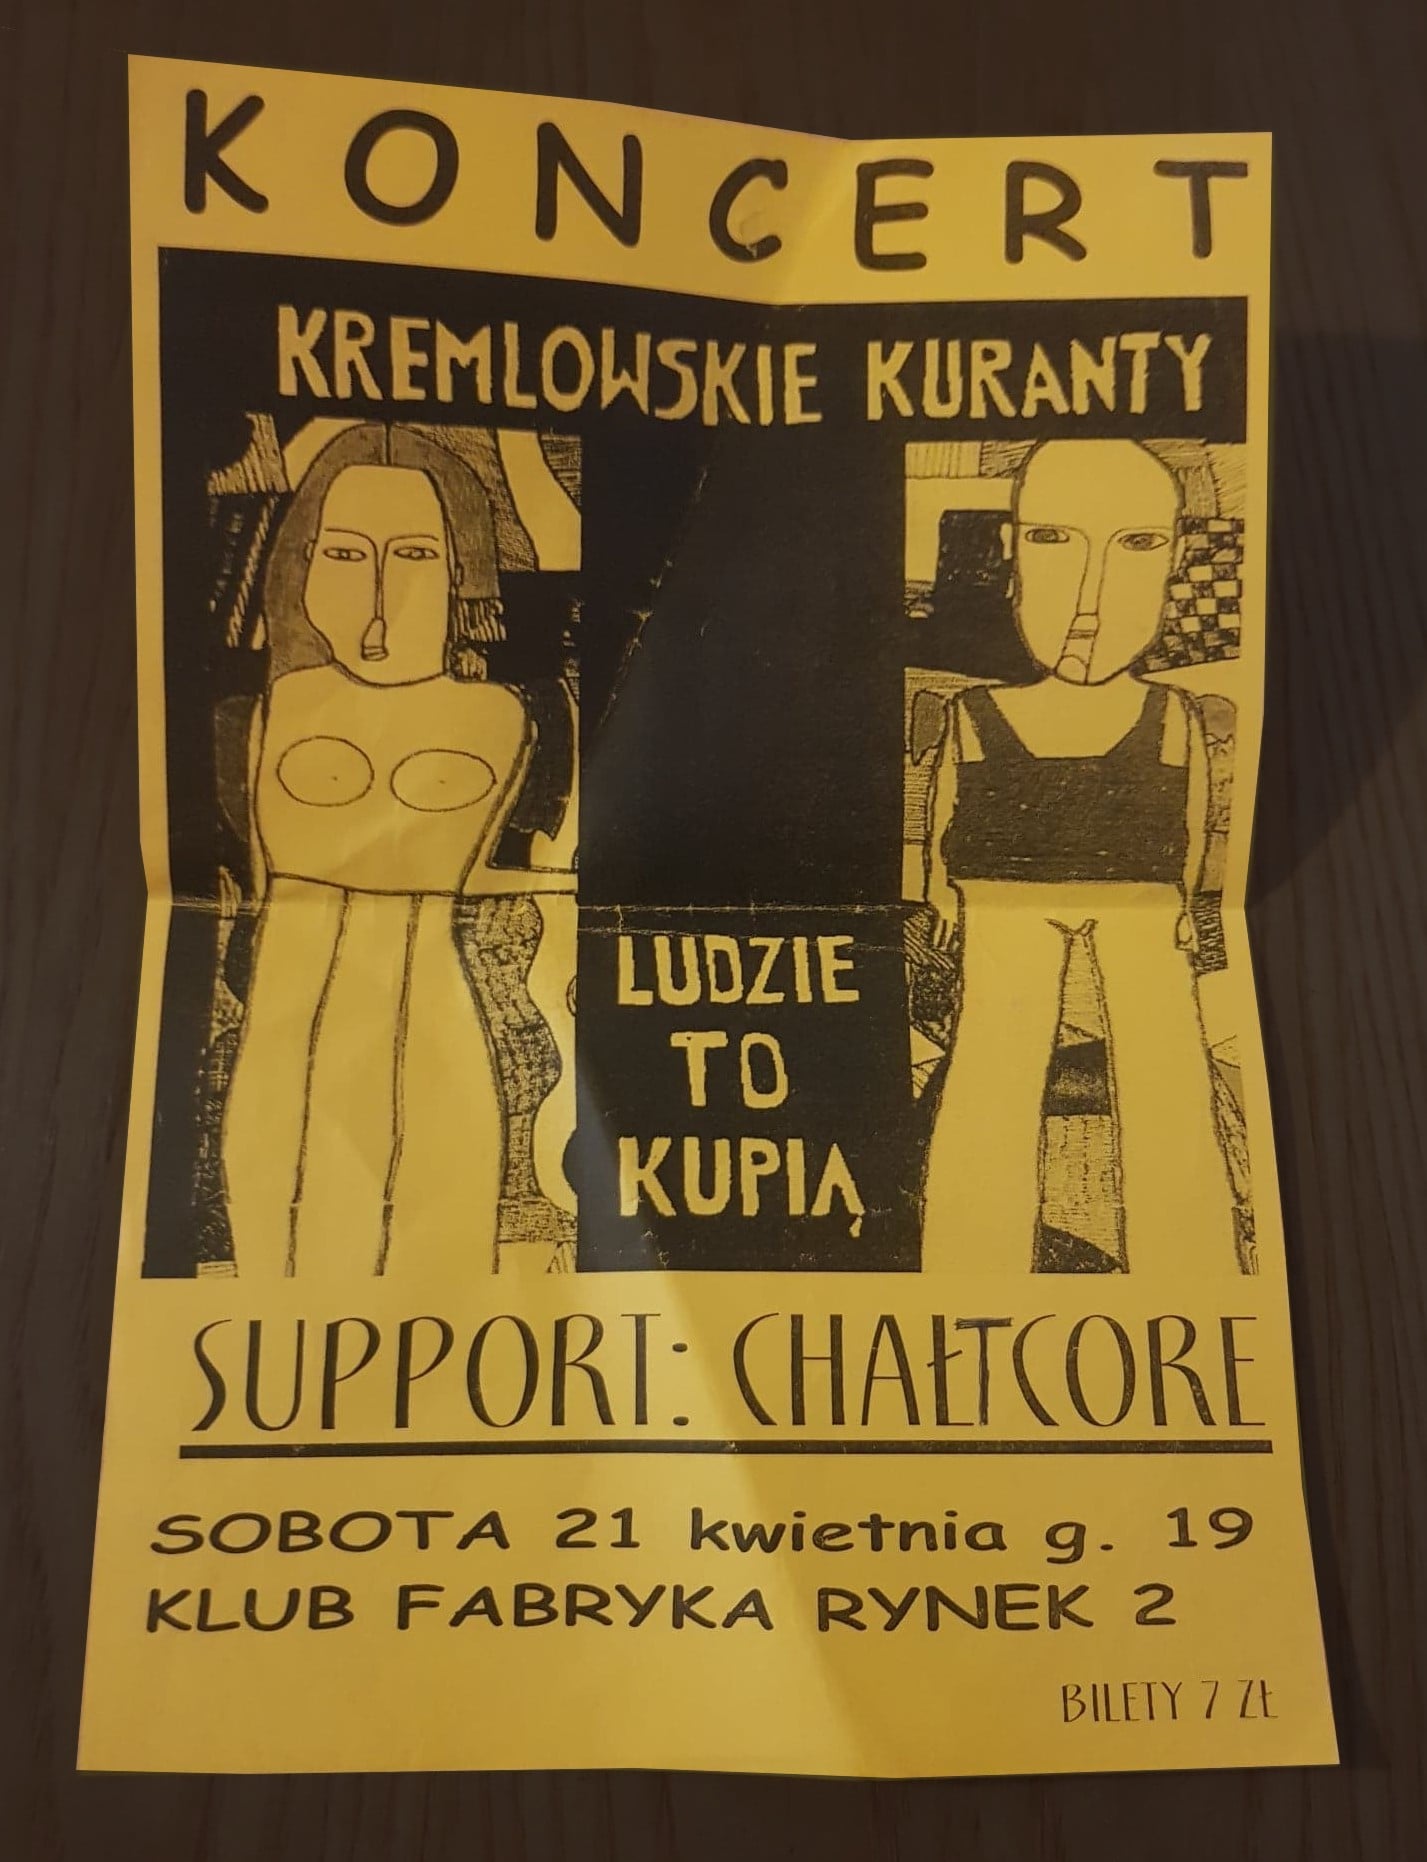 KONCERT
KREMLOWSKIE KURANTY
LUDZIE
TO
KUPIĄ
SUPPORT: CHAŁTCORE
SOBOTA 21 kwietnia g. 19
KLUB FABRYKA RYNEK 2
BILETY 7 ZŁ